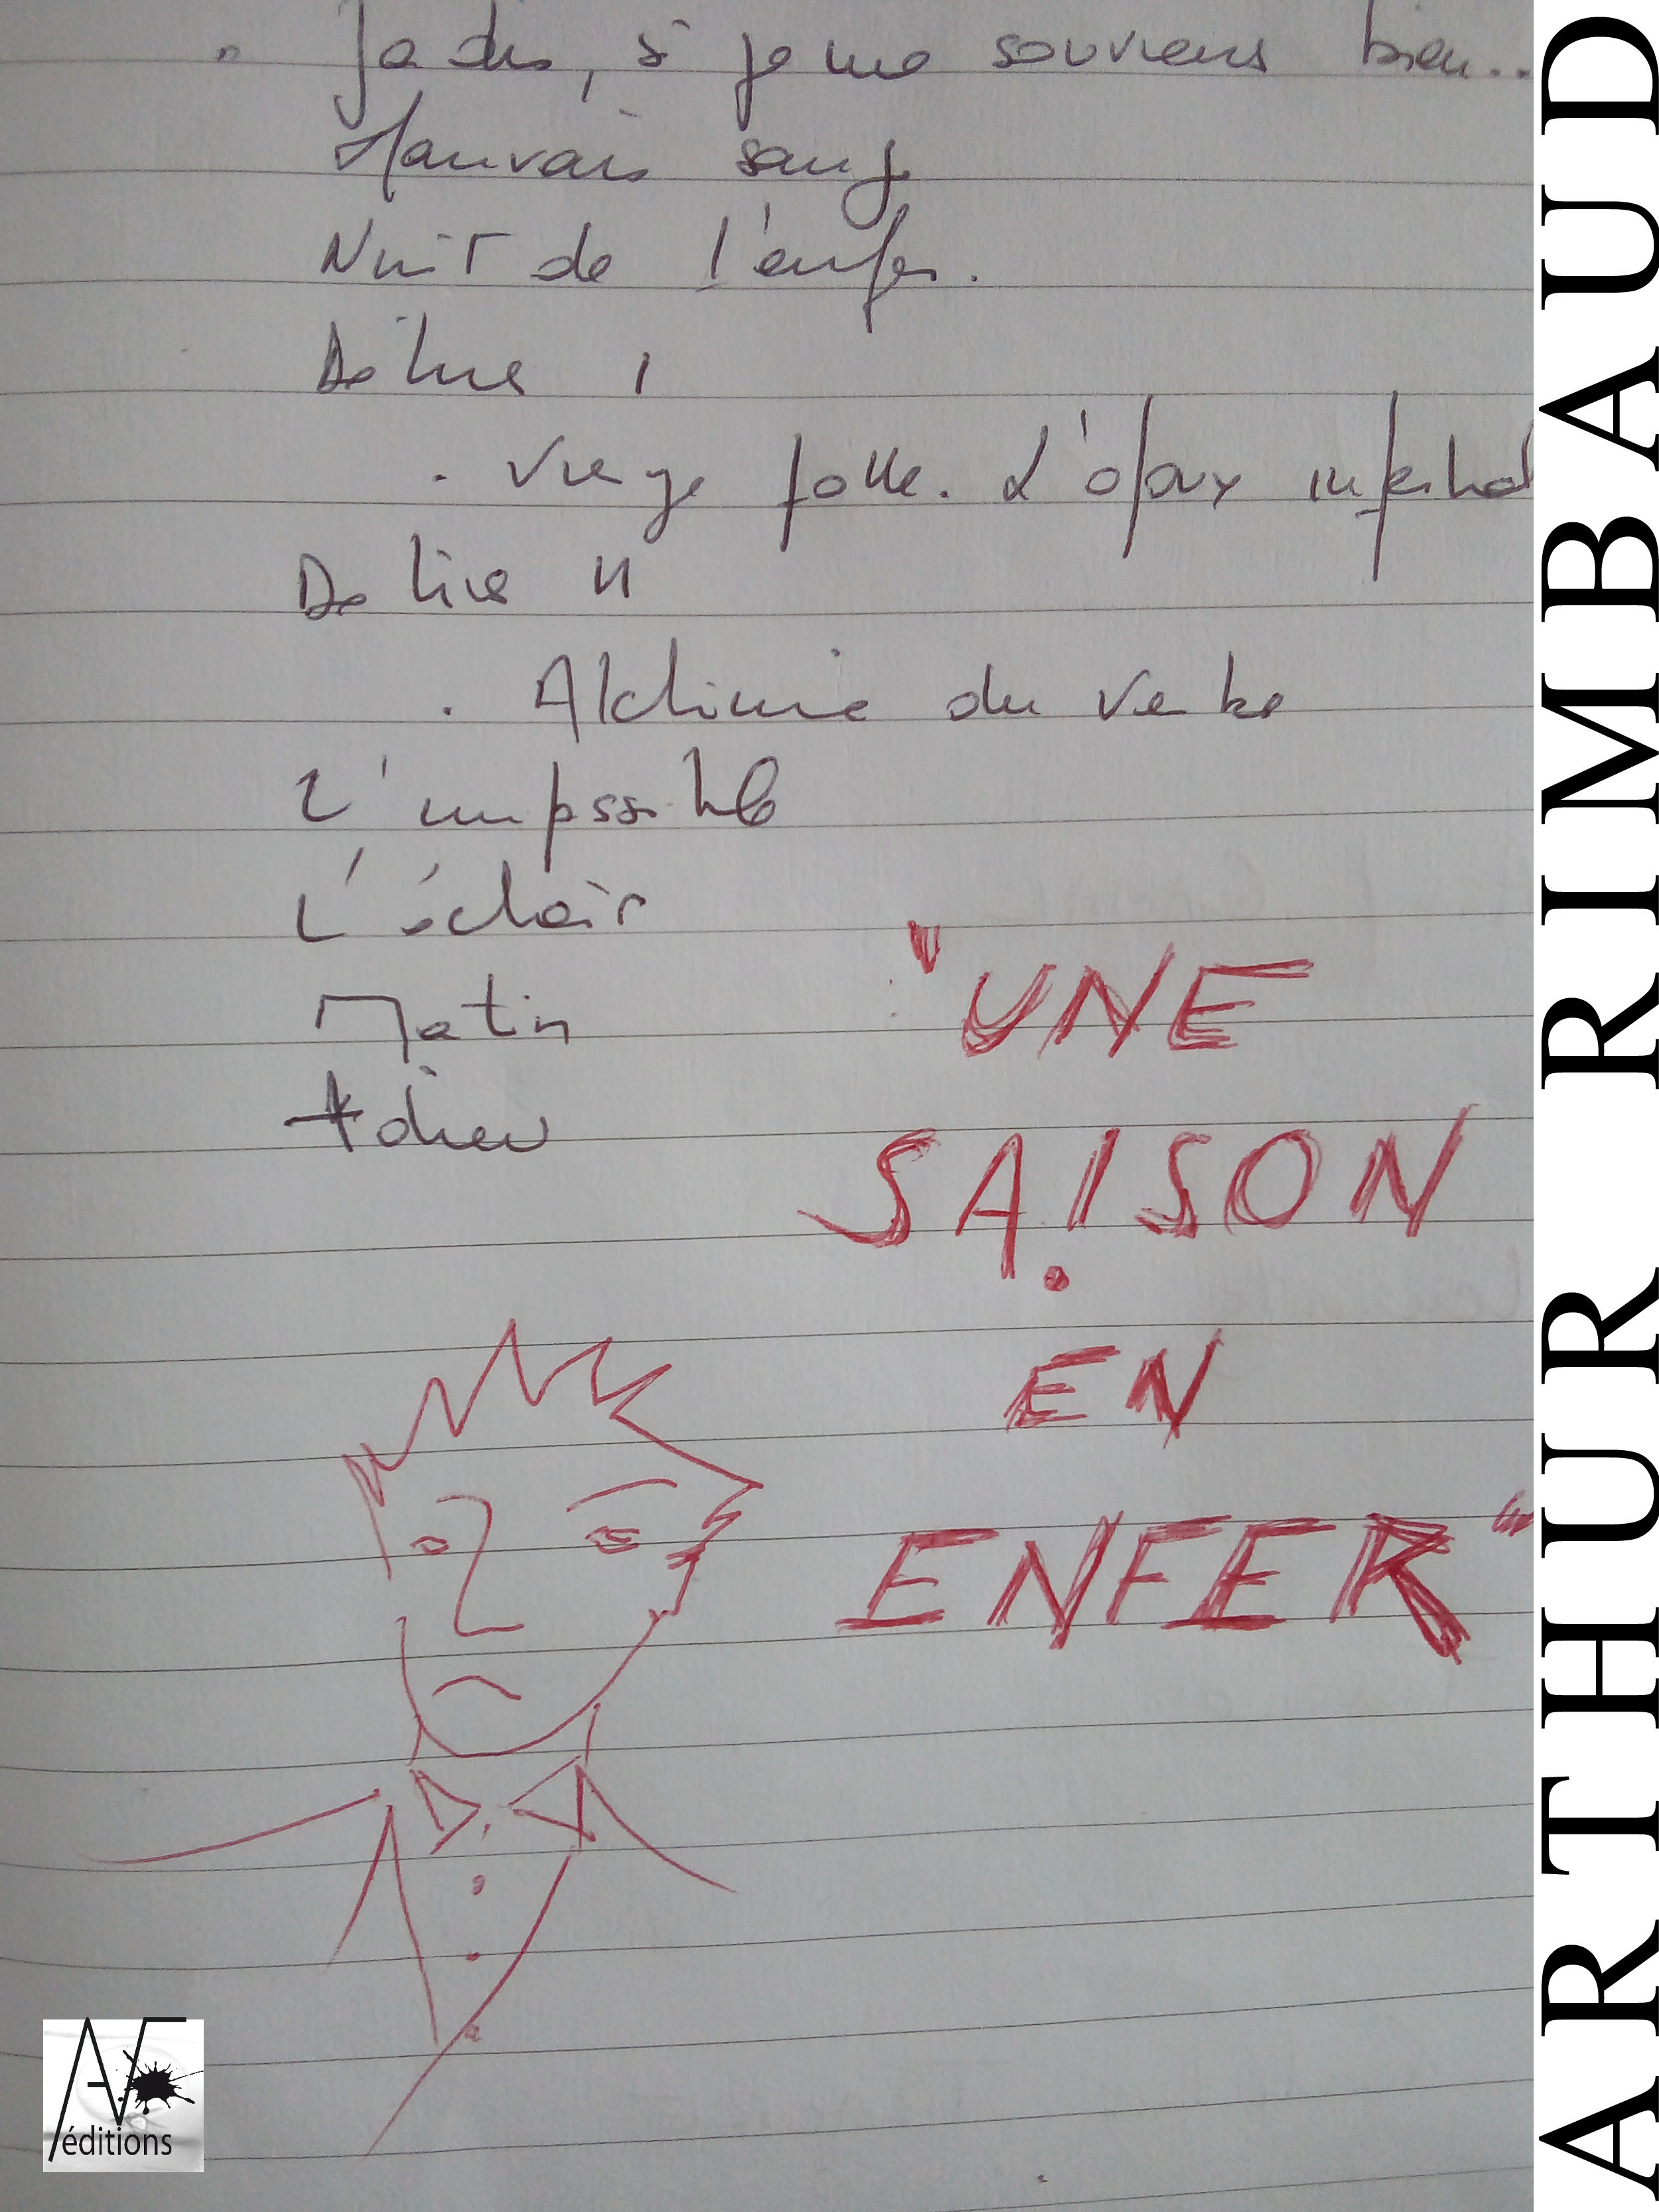 " Jadis, si je me souviens bien..
Mauvais sang
Nuit de l'enfer.
Délires I
. Vierge folle. L'époux infernal
Délires II
. Alchimie du verbe
L'impossible
L'éclair
Matin
Adieu
"UNE
SAISON
EN
ENFER"
ARTHUR RIMBAUD
AF
éditions